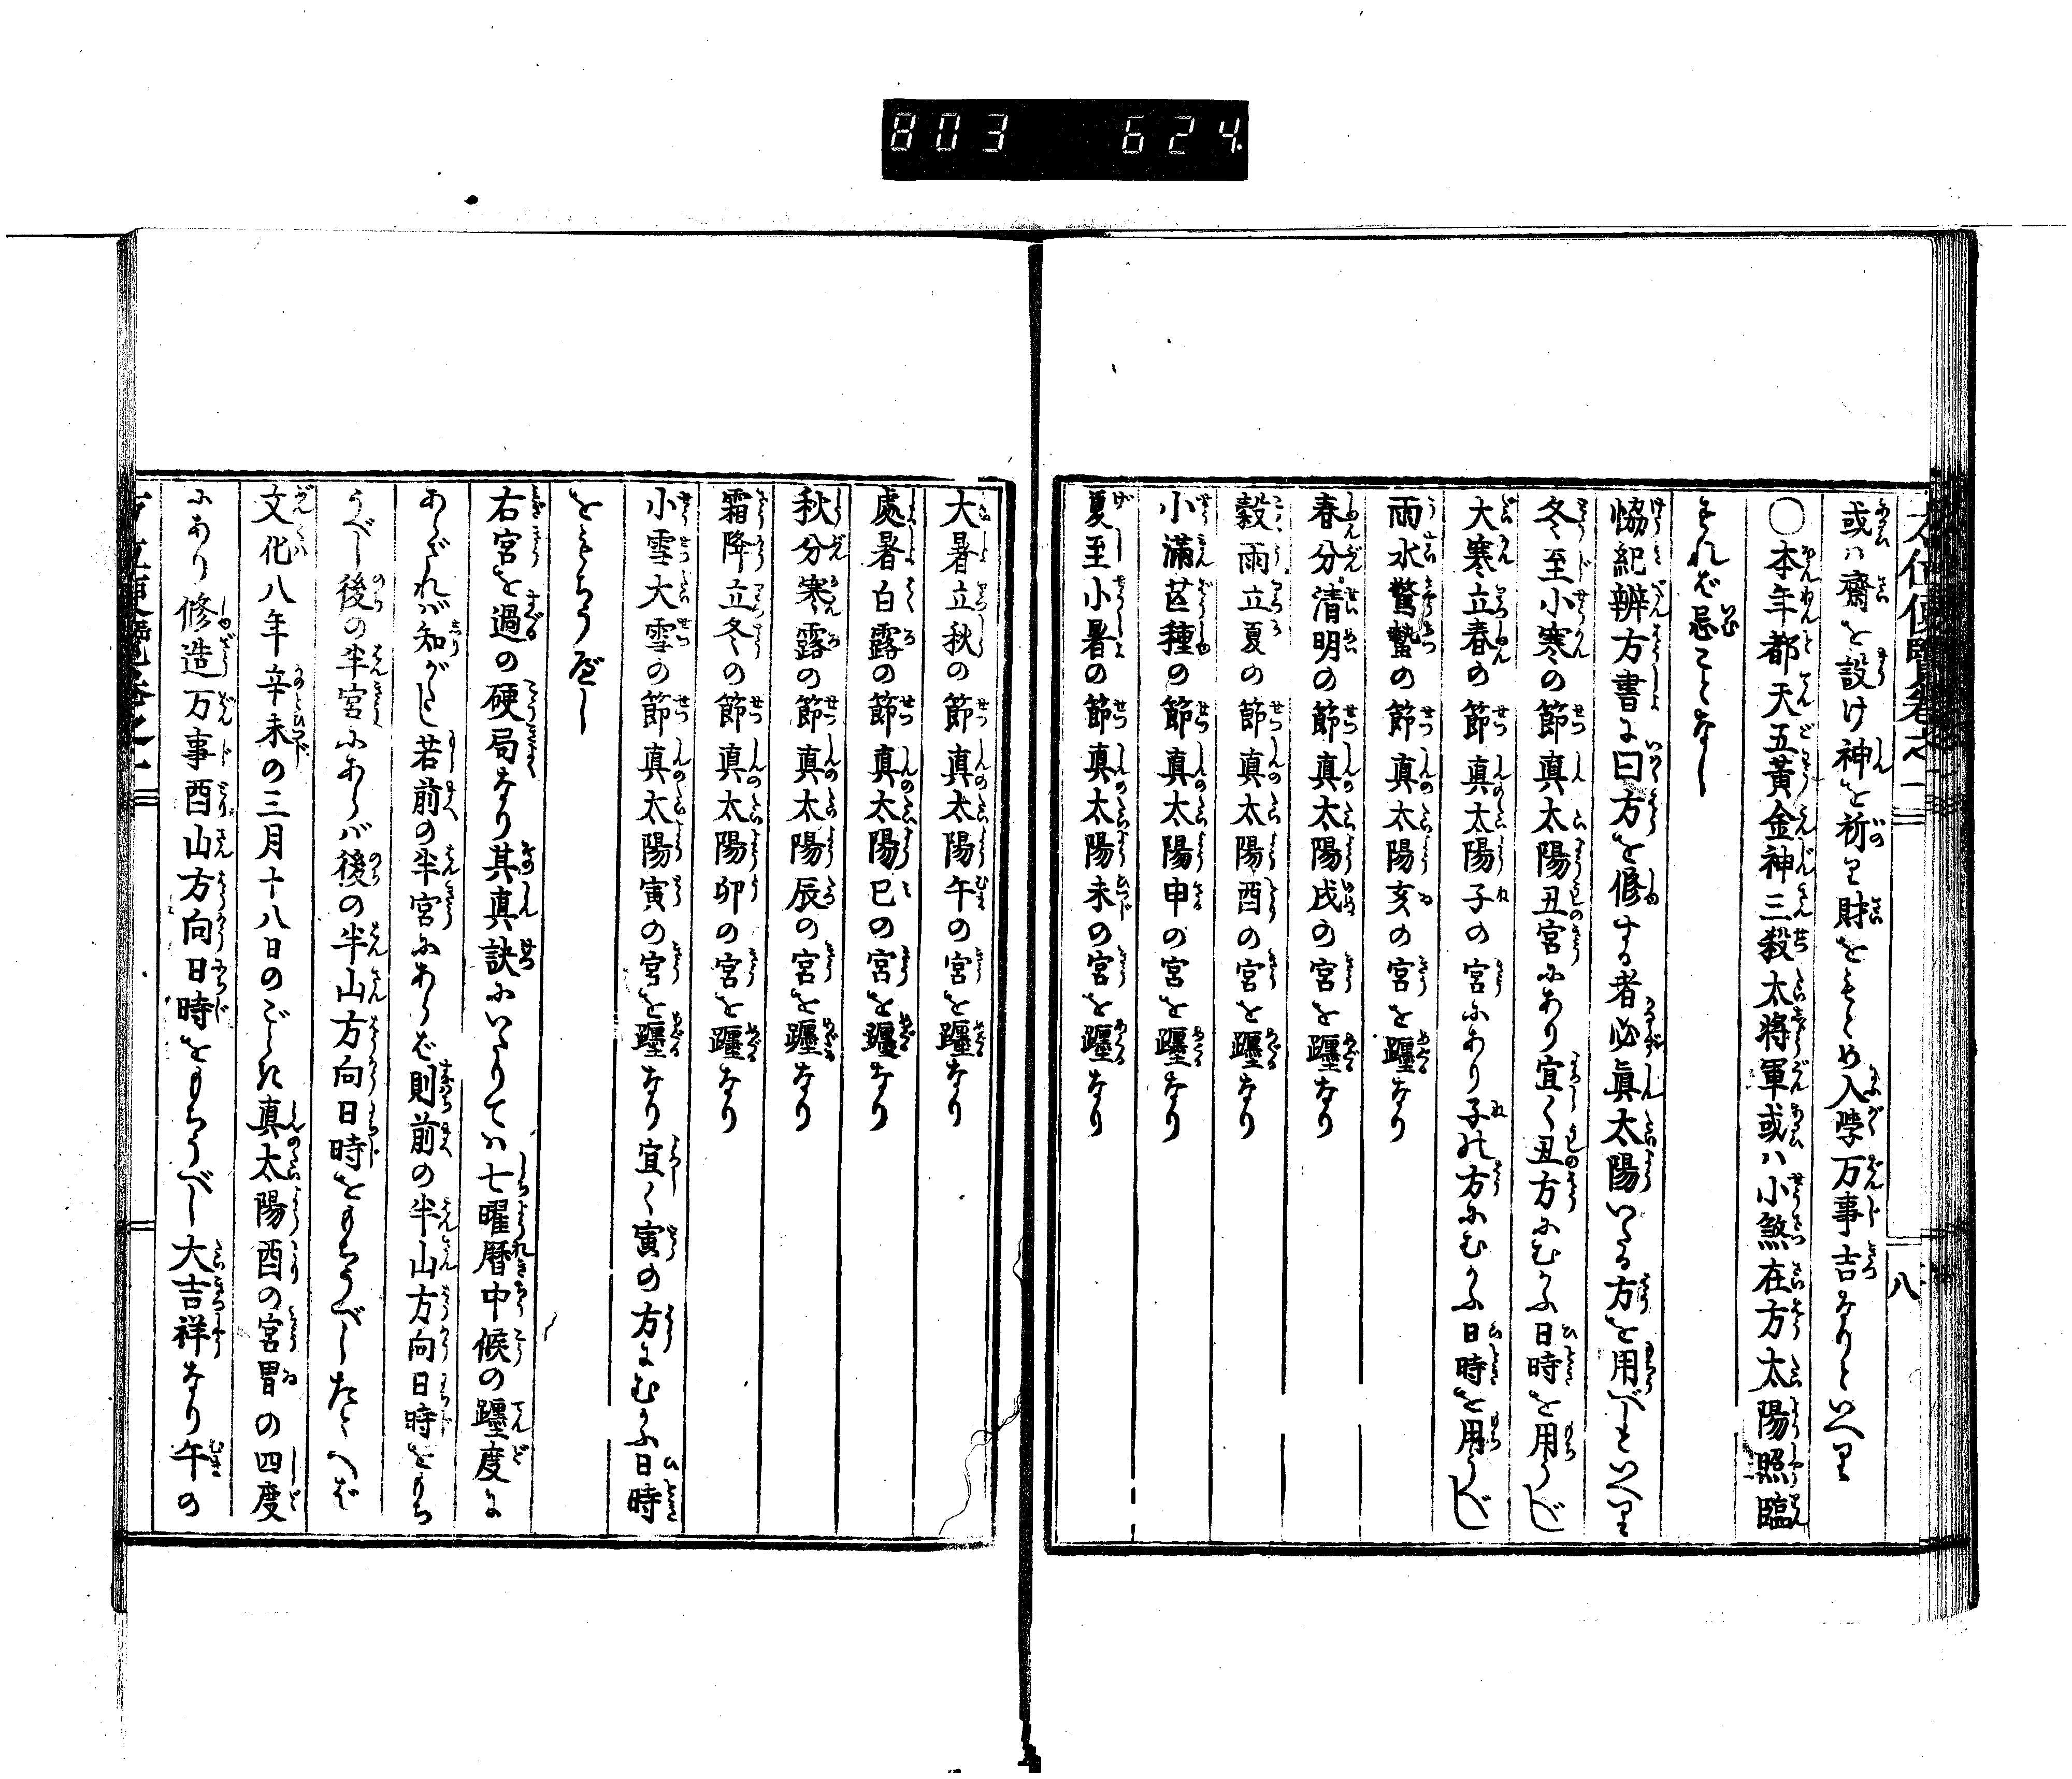 803 624.
八
或ハ齋を設け神を祈り財をもとめ入學万事吉なりといへり
〇本年都天五黃金神三殺太將軍或ハ小煞在方太陽照臨
すれば忌ことなし
恊紀辨方書に曰方を修する者必眞太陽いたる方を用べしといへり
冬至小寒の節真太陽丑宮にあり宜く丑方にむかふ日時を用うべし
大寒立春の節真太陽子の宮にあり子の方にむかふ日時を用うべし
雨水驚蟄の節真太陽亥の宮を躔なり
春分清明の節真太陽戌の宮を躔なり
穀雨立夏の節真太陽酉の宮を躔なり
小滿芒種の節真太陽申の宮を躔なり
夏至小暑の節真太陽未の宮を躔なり
大暑立秋の節真太陽午の宮を躔なり
處暑白露の節真太陽巳の宮を躔なり
秋分寒露の節真太陽辰の宮を躔なり
霜降立冬の節真太陽卯の宮を躔なり
小雪大雪の節真太陽寅の宮を躔なり宜く寅の方にむかふ日時
をもちう庭し
右宮を過の硬局なり其真訣にいたりてハ七曜曆中候の躔度に
あらざれバ知がたし若前の半宮にあらば則前の半山方向日時をもち
うべし後の半宮にあらバ後の半山方向日時をもちうべしたとへば
文化八年辛未の三月十八日のごとき真太陽酉の宮胃の四度
にあり修造万事酉山方向日時をもちうべし大吉祥なり午の